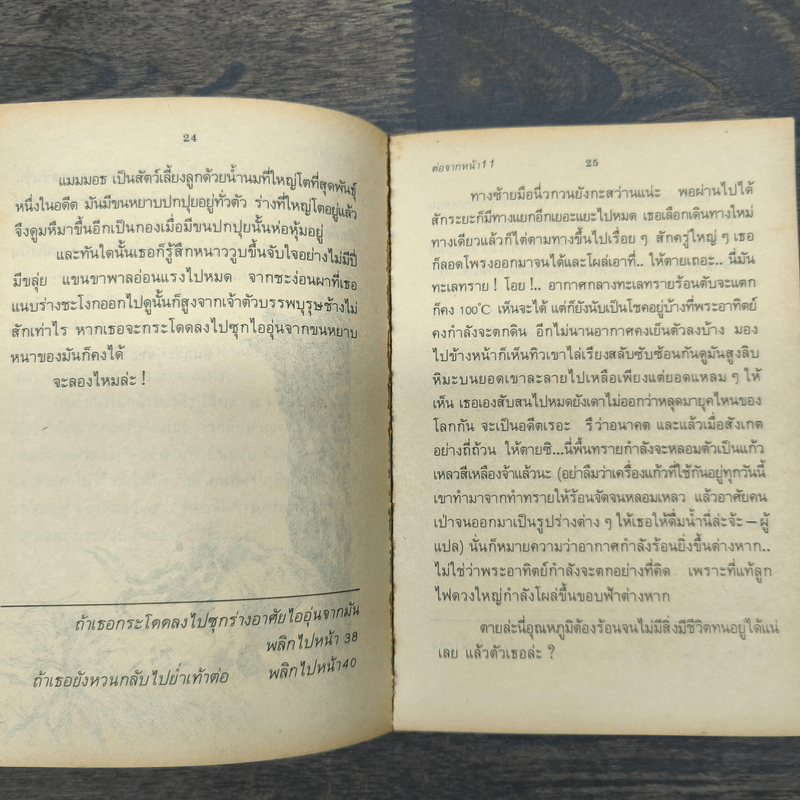 24
แมมมอธ เป็นสัตว์เลี้ยงลูกด้วยน้ำนมที่ใหญ่โตที่สุดพันธุ์
หนึ่งในอดีต มันมีขนหยาบปกปุยอยู่ทั่วตัว ร่างที่ใหญ่โตอยู่แล้ว
จึงดูมหึมาขึ้นอีกเป็นกองเมื่อมีขนปกปุยนั้นห่อหุ้มอยู่
และทันใดนั้นเธอก็รู้สึกหนาววูบขึ้นจับใจอย่างไม่มีปี่
มีขลุ่ย แขนขาพาลอ่อนแรงไปหมด จากชะง่อนผาที่เธอ
แนบร่างชะโงกออกไปดูนั้นก็สูงจากเจ้าตัวบรรพบุรุษช้างไม่
สักเท่าไร หากเธอจะกระโดดลงไปซุกไออุ่นจากขนหยาบ
หนาของมันก็คงได้
จะลองไหมล่ะ !
ถ้าเธอกระโดดลงไปซุกร่างอาศัยไออุ่นจากมัน
พลิกไปหน้า 38
ถ้าเธอยังหวนกลับไปย่ำเท้าต่อ พลิกไปหน้า 40
ต่อจากหน้า 11
25
ทางซ้ายมือนี่วกวนยังกะสว่านแน่ะ พอผ่านไปได้
สักระยะก็มีทางแยกอีกเยอะแยะไปหมด เธอเลือกเดินทางใหม่
ทางเดียวแล้วก็ไต่ตามทางขึ้นไปเรื่อย ๆ สักครู่ใหญ่ ๆ เธอ
ก็ลอดโพรงออกมาจนได้และโผล่เอาที่.. ให้ตายเถอะ.. นี่มัน
ทะเลทราย ! โอย !.. อากาศกลางทะเลทรายร้อนตับจะแตก
ก็คง 100°C เห็นจะได้ แต่ก็ยังนับเป็นโชคอยู่บ้างที่พระอาทิตย์
คงกำลังจะตกดิน อีกไม่นานอากาศคงเย็นตัวลงบ้าง มอง
ไปข้างหน้าก็เห็นทิวเขาไล่เรียงสลับซับซ้อนกันดูมันสูงลิบ
หิมะบนยอดเขาละลายไปเหลือเพียงแต่ยอดแหลม ๆ ให้
เห็น เธอเองสับสนไปหมดยังเดาไม่ออกว่าหลุดมายุคไหนของ
โลกกัน จะเป็นอดีตเรอะ รึว่าอนาคต และแล้วเมื่อสังเกต
อย่างถี่ถ้วน ให้ตายซิ...นี่พื้นทรายกำลังจะหลอมตัวเป็นแก้ว
เหลวสีเหลืองจ้าแล้วนะ (อย่าลืมว่าเครื่องแก้วที่ใช้กันอยู่ทุกวันนี้
เขาทำมาจากทำทรายให้ร้อนจัดจนหลอมเหลว แล้วอาศัยคน
เป่าจนออกมาเป็นรูปร่างต่าง ๆ ให้เธอให้ดื่มน้ำนี่ล่ะจ้ะ — ผู้
แปล) นั่นก็หมายความว่าอากาศกำลังร้อนยิ่งขึ้นต่างหาก..
ไม่ใช่ว่าพระอาทิตย์กำลังจะตกอย่างที่คิด เพราะที่แท้ลูก
ไฟดวงใหญ่กำลังโผล่ขึ้นขอบฟ้าต่างหาก
ตายล่ะนี่อุณหภูมิต้องร้อนจนไม่มีสิ่งมีชีวิตทนอยู่ได้แน่
เลย แล้วตัวเธอล่ะ ?